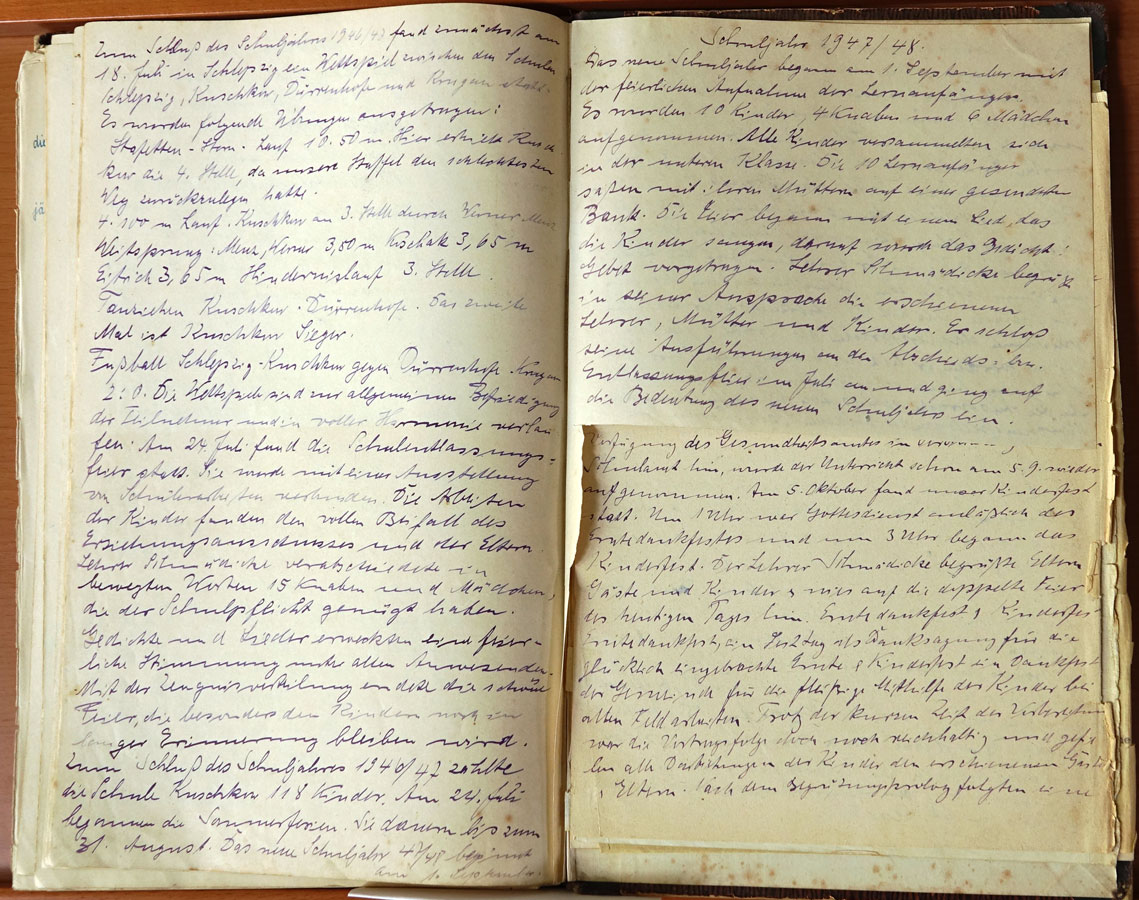 die
jä
Zum Schluß des Schuljahres 1946/47 fand zunächst am
18. Juli in Schlepzig ein Wettspiel zwischen den Schulen
Schlepzig, Kuschkow, Dürrenhofe und Krugau statt.
Es wurden folgende Übungen ausgetragen:
Stafetten-Stern-Lauf 10.50 m. Hier erhielt Kusch-
kow die 4. Stelle, da unsere Staffel den schlechtesten
Weg zurückzulegen hatte.
4.100 m Lauf. Kuschkow an 3. Stelle durch Werner Menz
Weitsprung: Menz, Werner 3,50 m Kschak 3,65 m
3,65 m Hindernislauf 3. Stelle.
Tauziehen Kuschkow-Dürrenhofe. Das zweite
Mal ist Kuschkow Sieger.
Fußball Schlepzig-Kuschkow gegen Dürrenhofe Krugau
2:0. Die Wettspiele sind zur allgemeinen Befriedigung
der Teilnehmer und in voller Harmonie verlau-
fen. Am 24. Juli fand die Schulentlassungs-
feier statt. Sie wurde mit einer Ausstellung
von Schülerarbeiten verbunden. Die Arbeiten
der Kinder fanden den vollen Beifall des
Erziehungsausschusses und der Eltern.
Lehrer Schmädicke verabschiedete in
bewegten Worten 15 Knaben und Mädchen,
die der Schulpflicht genügt haben.
Gedichte und Lieder erweckten eine feier-
liche Stimmung unter allen Anwesenden.
Mit der Zeugnisverteilung endete die schöne
Feier, die besonders den Kindern noch in
langer Erinnerung bleiben wird.
Zum Schluß des Schuljahres 1946/47 zählte
die Schule Kuschkow 118 Kinder. Am 24. Juli
begannen die Sommerferien. Sie dauern bis zum
31. August. Das neue Schuljahr 47/48 beginnt
am 1. September.
Schuljahr 1947/48.
Das neue Schuljahr begann am 1. September mit
der feierlichen Aufnahme der Lernanfänger.
Es wurden 10 Kinder, 4 Knaben und 6 Mädchen
aufgenommen. Alle Kinder versammelten sich
in der unteren Klasse. Die 10 Lernanfänger
saßen mit ihren Müttern auf einer gesonderten
Bank. Die Feier begann mit einem Lied, das
die Kinder sangen, darauf wurde das Gedicht:
Selbst vorgetragen. Lehrer Schmädicke begrüßte
in seiner Ansprache die erschienenen
Lehrer, Mütter und Kinder. Er schloß
seine Ausführungen an den Abschieds-
Entlassungsfeier im Juli an und ging auf
die Bedeutung des neuen Schuljahrs ein.
Verfügung des Gesundheitsamtes in
Schulamt hin, wurde der Unterricht schon am 5.9. wieder
aufgenommen. Am 5. Oktober fand unser Kinderfest
statt. Um 1 Uhr war Gottesdienst anläßlich des
Erntedankfestes und um 3 Uhr begann das
Kinderfest. Der Lehrer Schmädicke begrüßte Eltern
Gäste und Kinder & wies auf die doppelte Feier
des heutigen Tages hin. Erntedankfest & Kinderfest
Erntedankfest, ein Festtag als Danksagung für die
glücklich eingebrachte Ernte & Kinderfest ein Dankfest
der Gemeinde für die fleißige Mithilfe der Kinder bei
allen Feldarbeiten. Trotz der kurzen Zeit der Vorbereitung
war die Vortragsfolge doch noch reichhaltig und gefie-
len alle Darbietungen der Kinder den erschienenen Gästen
& Eltern. Nach dem Begrüßungsprolog folgten eine